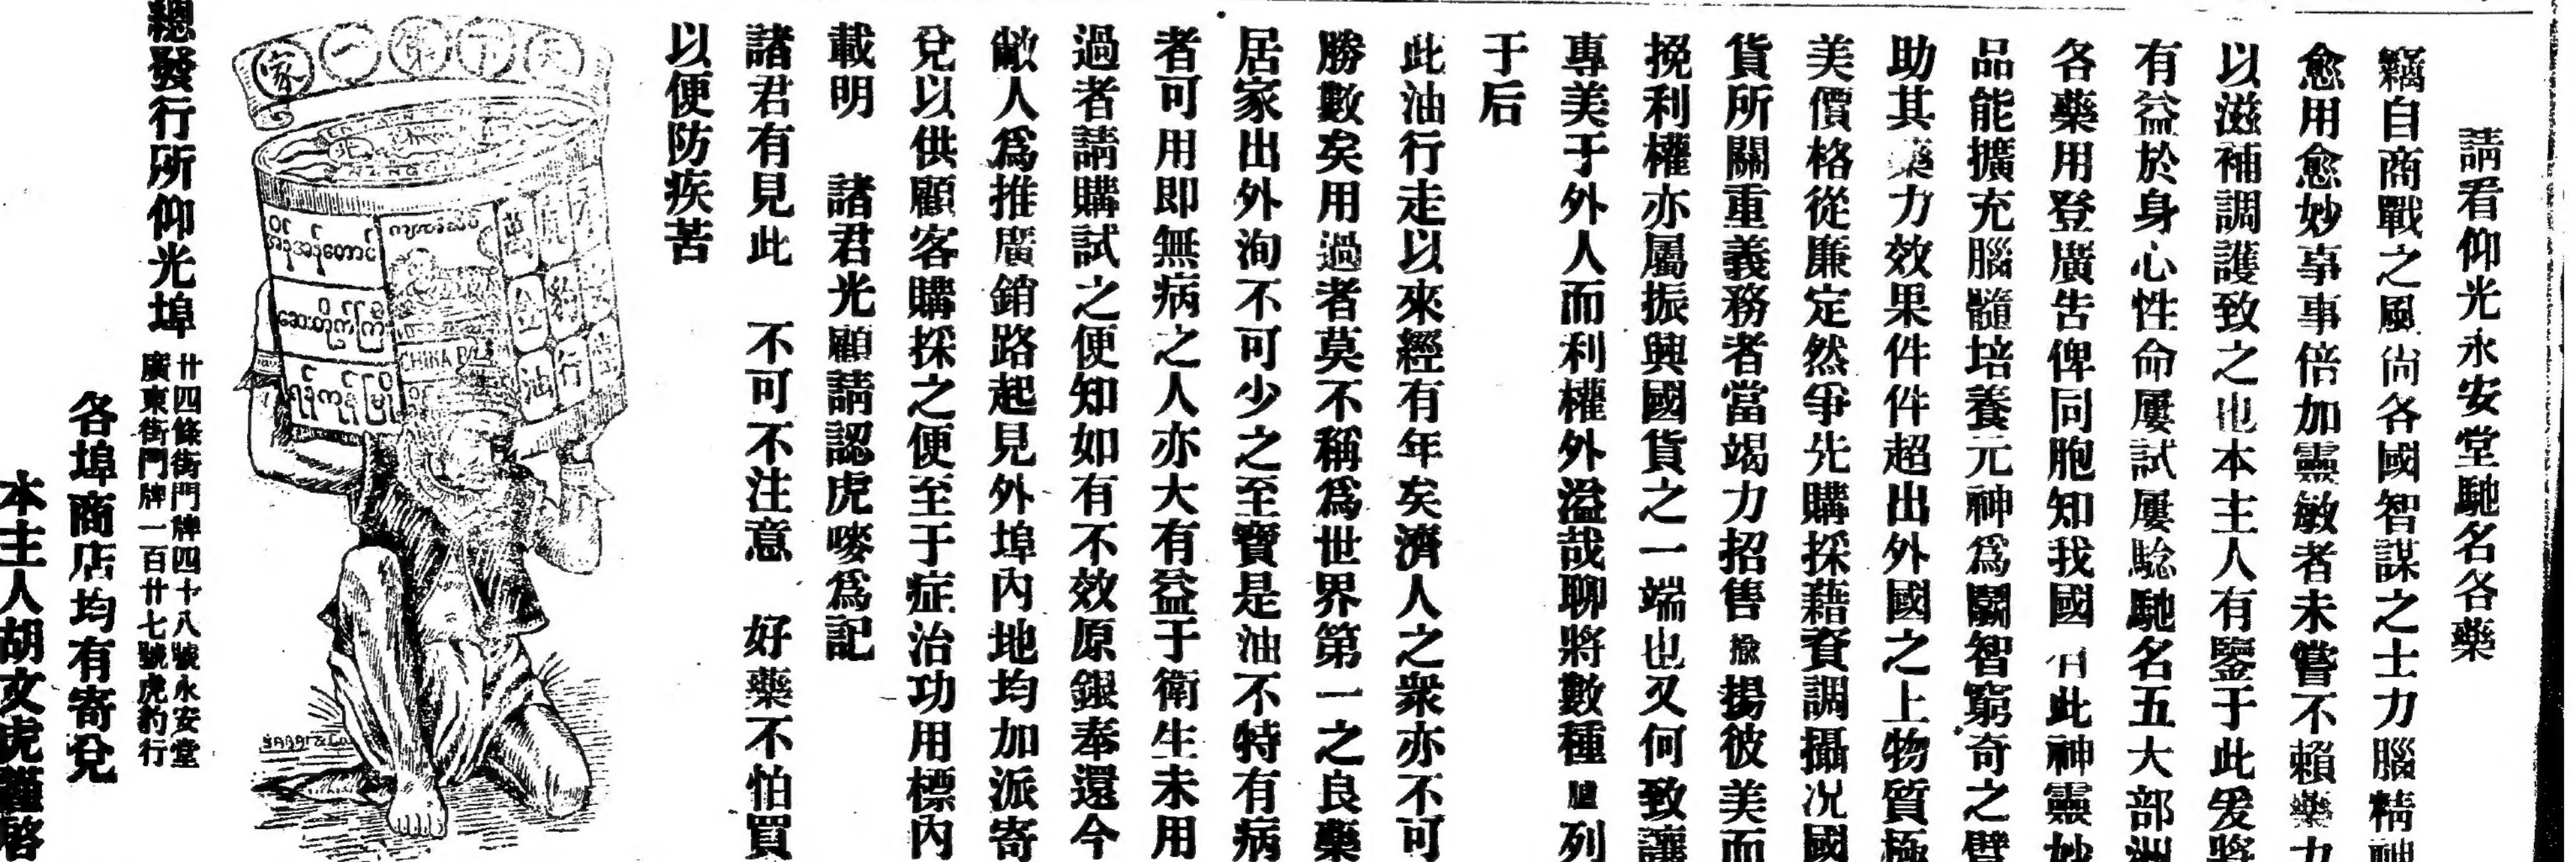 請看仰光永安堂馳名各藥
竊自商戰之風尙各國智謀之士力腦精神
愈用愈妙事事倍加靈敏者未嘗不賴藥力
以滋補調護致之也本主人有鑒于此爰將
有益於身心性命屢試屢驗馳名五大部洲
各藥用登廣告俾同胞知我國有此神靈妙
品能擴充腦髓培養元神爲鬬智窮奇之臂
助其藥力效果件件超出外國之上物質極
美價格從廉定然爭先購採藉資調攝况國
貨所關重義務者當竭力招售揄揚彼美而
挽利權亦屬振興國貨之一端也又何致讓
專美于外人而利權外溢哉聊將數種臚列
于后
此油行走以來經有年矣濟人之衆亦不可
勝數矣用過者莫不稱爲世界第一之良藥
居家出外洵不可少之至寶是油不特有病
者可用即無病之人亦大有益于衛生未用
過者請購試之便知如有不效原銀奉還今
敝人爲推廣銷路起見外埠內地均加派寄
兌以供顧客購採之便至于症治功用標內
載明　諸君光顧請認虎嘜爲記
諸君有見此　不可不注意　好藥不怕買
以便防疾苦
天下第一家
萬金油
虎豹行
CHINA
總發行所仰光埠
廿四條街門牌四十八號永安堂
廣東街門牌一百廿七號虎豹行
各埠商店均有寄兌
本主人胡文虎謹啓